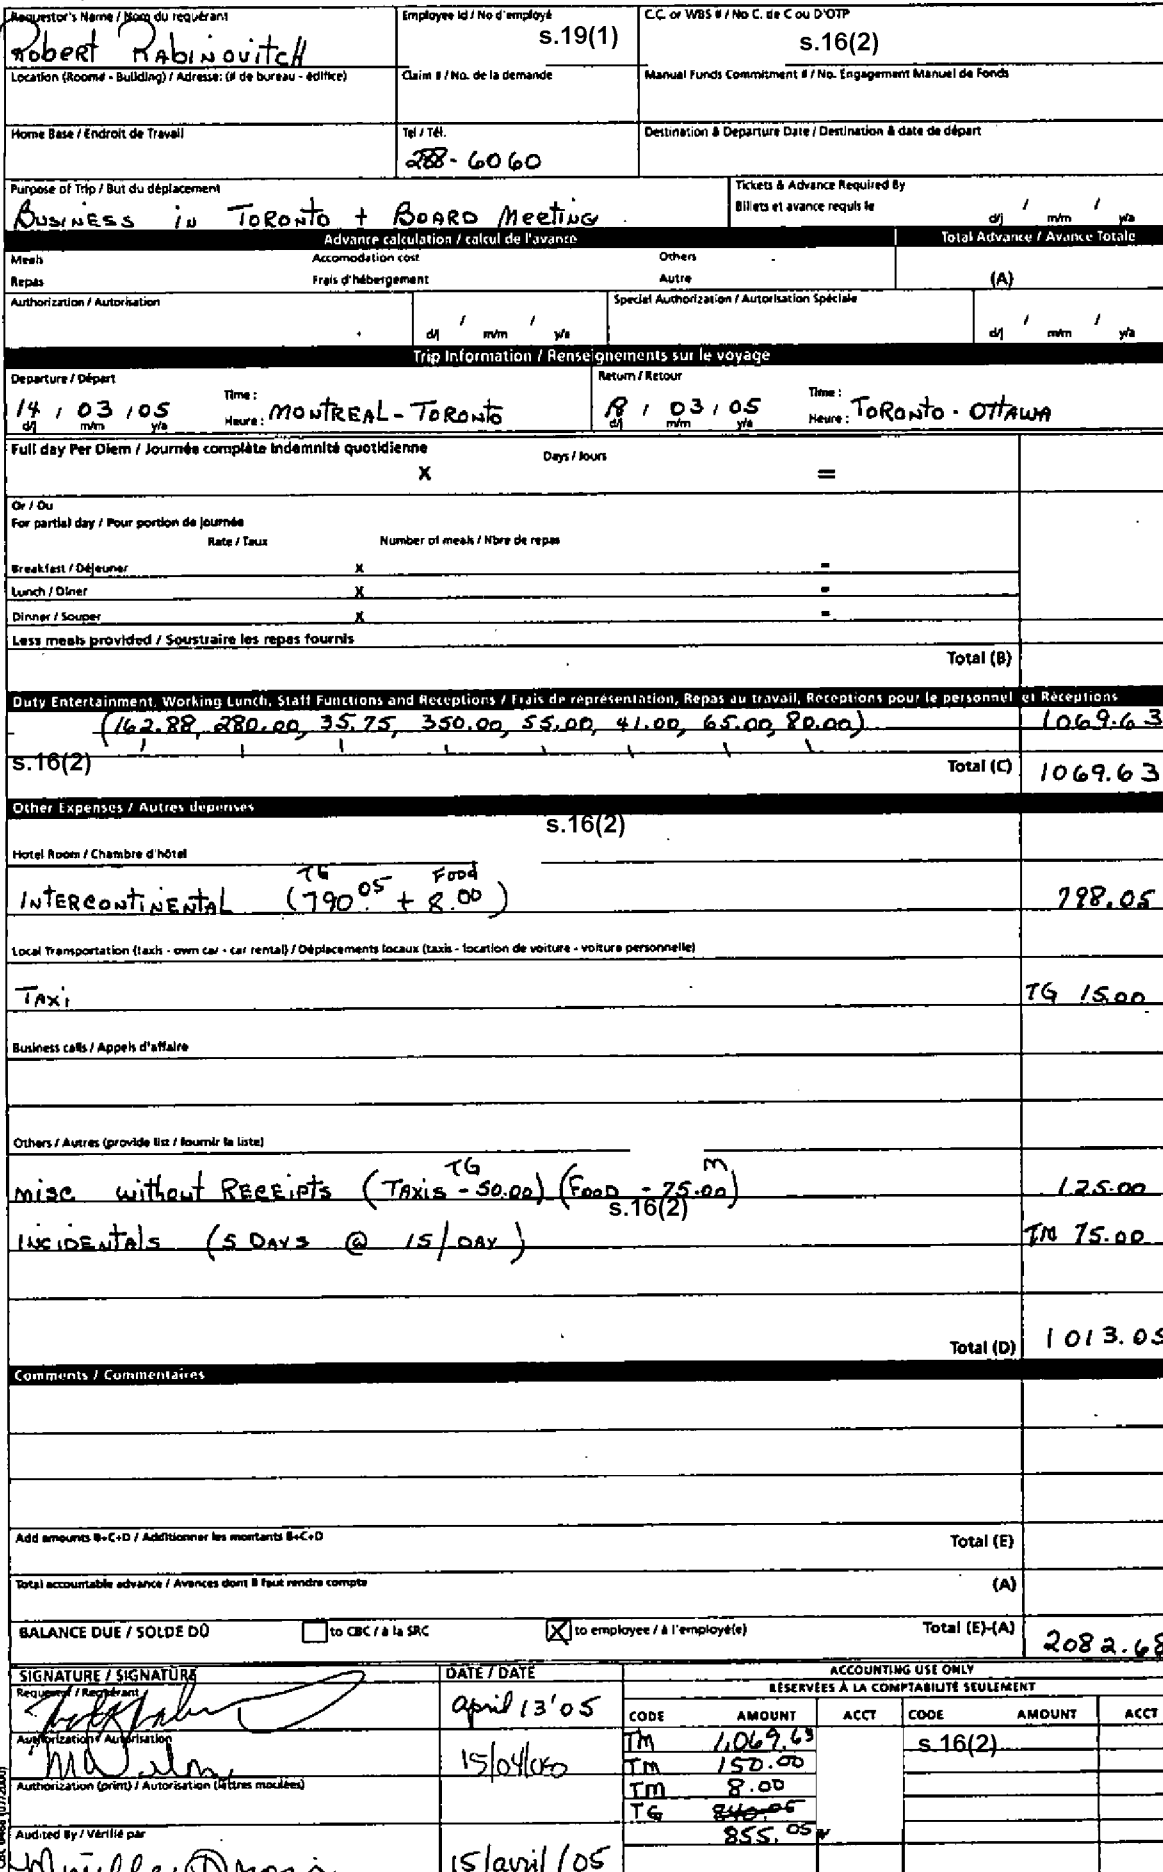 Requestor's Name / Nom du requérant
Employee Id / No d'employé
C.C. or WBS # / No C. de C ou D'OTP
Robert Rabinovitch
s.19(1)
s.16(2)
Location (Room# - Building) / Adresse: (# de bureau - édifice)
Claim # / No. de la demande
Manual Funds Commitment # / No. Engagement Manuel de Fonds
Home Base / Endroit de Travail
Tel / Tél.
Destination & Departure Date / Destination & date de départ
288-6060
Purpose of Trip / But du déplacement
Tickets & Advance Required By
Billets et avance requis le
d/j / m/m / y/a
Business in Toronto + Board Meeting
Advance calculation / calcul de l'avance
Total Advance / Avance Totale
Meals
Accomodation cost
Others
Repas
Frais d'hébergement
Autre
(A)
Authorization / Autorisation
d/j / m/m / y/a
Special Authorization / Autorisation Spéciale
d/j / m/m / y/a
Trip Information / Renseignements sur le voyage
Departure / Départ
Return / Retour
14 / 03 / 05
d/j m/m y/a
Time :
Heure : MONTREAL - TORONTO
18 / 03 / 05
d/j m/m y/a
Time :
Heure : TORONTO - OTTAWA
Full day Per Diem / Journée complète indemnité quotidienne
Days / Jours
X =
Or / Ou
For partial day / Pour portion de journée
Rate / Taux
Number of meals / Nbre de repas
Breakfast / Déjeuner x =
Lunch / Dîner x =
Dinner / Souper x =
Less meals provided / Soustraire les repas fournis
Total (B)
Duty Entertainment, Working Lunch, Staff Functions and Receptions / Frais de représentation, Repas au travail, Réceptions pour le personnel et Réceptions
(162.88, 280.00, 35.75, 350.00, 55.00, 41.00, 65.00, 80.00) 1069.63
s.16(2)
Total (C) 1069.63
Other Expenses / Autres dépenses
s.16(2)
Hotel Room / Chambre d'hôtel
TG Food
INTERCONTINENTAL (790.05 + 8.00) 798.05
Local Transportation (taxis - own car - car rental) / Déplacements locaux (taxis - location de voiture - voiture personnelle)
Taxi TG 15.00
Business calls / Appels d'affaire
Others / Autres (provide list / fournir la liste)
TG M
misc without Receipts (Taxis - 50.00) (Food - 75.00) 125.00
s.16(2)
INCIDENTALS (5 DAYS @ 15/DAY) TM 75.00
Total (D) 1013.05
Comments / Commentaires
Add amounts B+C+D / Additionner les montants B+C+D
Total (E)
Total accountable advance / Avances dont il faut rendre compte
(A)
BALANCE DUE / SOLDE DÛ
to CBC / à la SRC
X to employee / à l'employé(e)
Total (E)-(A) 2082.68
SIGNATURE / SIGNATURE
DATE / DATE
ACCOUNTING USE ONLY
RÉSERVÉES À LA COMPTABILITÉ SEULEMENT
Requestor / Requérant
April 13'05
CODE AMOUNT ACCT CODE AMOUNT ACCT
Authorization / Autorisation
TM 1,069.63
s.16(2)
TM 150.00
TM 8.00
Authorization (print) / Autorisation (lettres moulées)
TG 840.05
855.05
Audited By / Vérifié par
15/avril/05